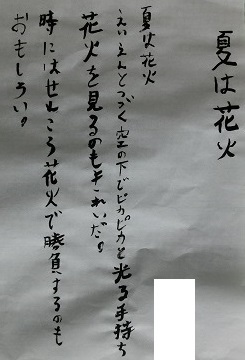 夏は花火
夏は花火
えいえんとつづく空の下でピカピカと光る手持ち
花火を見るのもきれいだ。
時にはせんこう花火で勝負するのも
おもしろい。